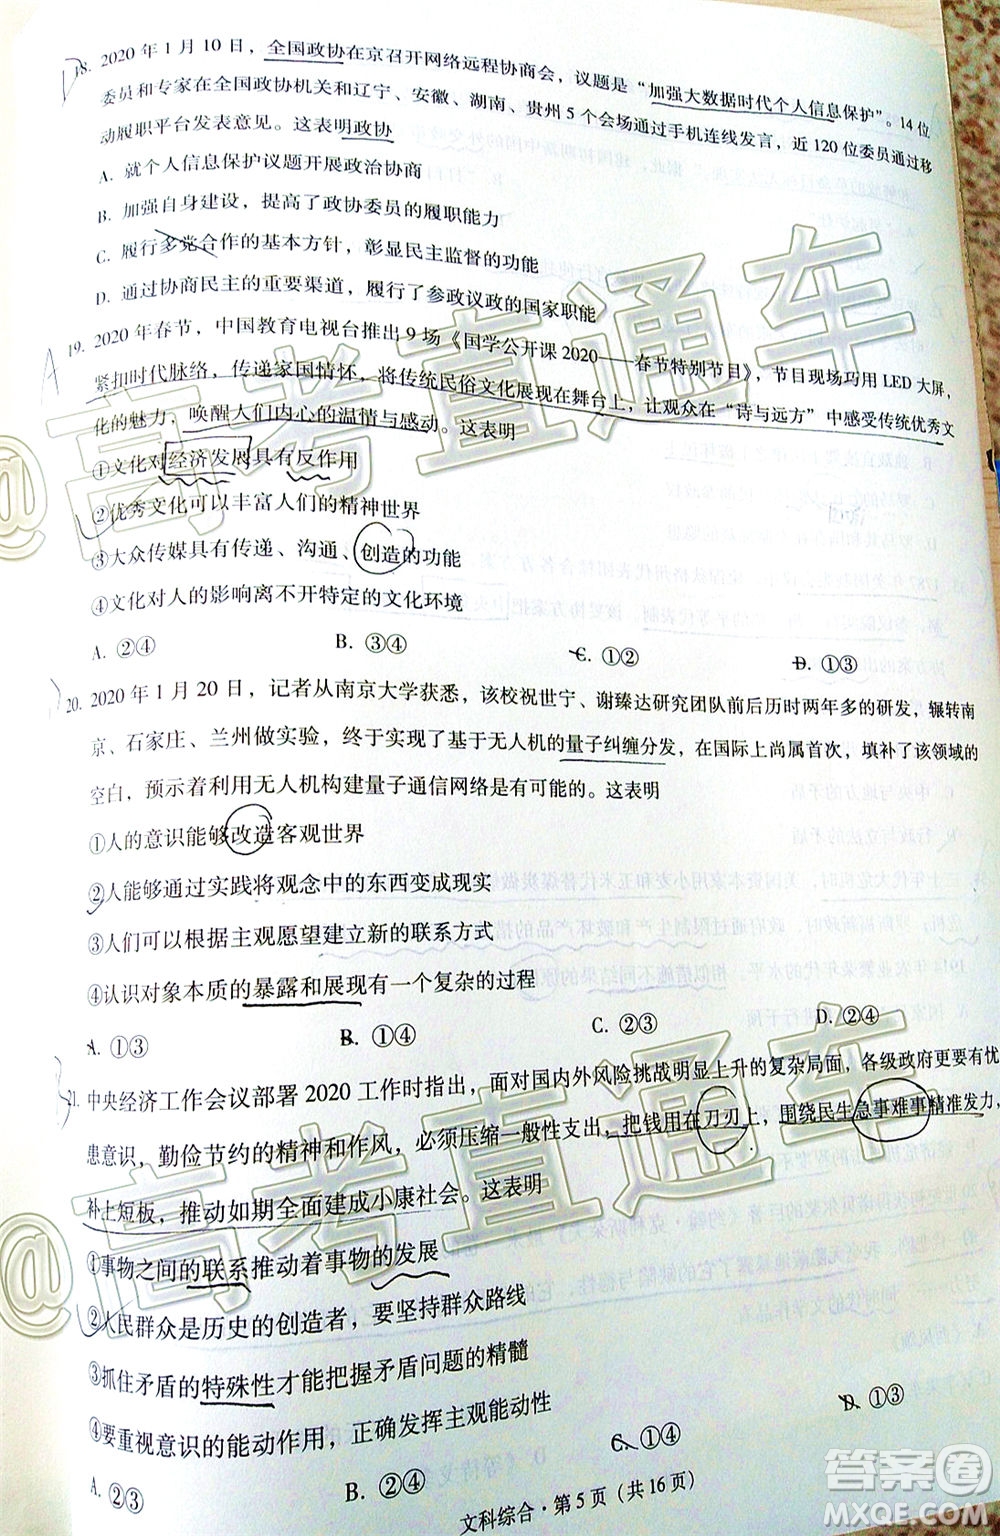 18. 2020 年 1 月 10 日，全国政协在京召开网络远程协商会，议题是“加强大数据时代个人信息保护”。14 位
委员和专家在全国政协机关和辽宁、安徽、湖南、贵州 5 个会场通过手机连线发言，近 120 位委员通过移
动履职平台发表意见。这表明政协
A. 就个人信息保护议题开展政治协商
B. 加强自身建设，提高了政协委员的履职能力
C. 履行多党合作的基本方针，彰显民主监督的功能
D. 通过协商民主的重要渠道，履行了参政议政的国家职能
19. 2020 年春节，中国教育电视台推出 9 场《国学公开课 2020——春节特别节目》，节目现场巧用 LED 大屏，
紧扣时代脉络，传递家国情怀，将传统民俗文化展现在舞台上，让观众在“诗与远方”中感受传统优秀文
化的魅力，唤醒人们内心的温情与感动。这表明
①文化对经济发展具有反作用
②优秀文化可以丰富人们的精神世界
③大众传媒具有传递、沟通、创造的功能
④文化对人的影响离不开特定的文化环境
A. ②④ B. ③④ C. ①② D. ①③
20. 2020 年 1 月 20 日，记者从南京大学获悉，该校祝世宁、谢臻达研究团队前后历时两年多的研发，辗转南
京、石家庄、兰州做实验，终于实现了基于无人机的量子纠缠分发，在国际上尚属首次，填补了该领域的
空白，预示着利用无人机构建量子通信网络是有可能的。这表明
①人的意识能够改造客观世界
②人能够通过实践将观念中的东西变成现实
③人们可以根据主观愿望建立新的联系方式
④认识对象本质的暴露和展现有一个复杂的过程
A. ①③ B. ①④ C. ②③ D. ②④
21. 中央经济工作会议部署 2020 工作时指出，面对国内外风险挑战明显上升的复杂局面，各级政府更要有忧
患意识，勤俭节约的精神和作风，必须压缩一般性支出，把钱用在刀刃上，围绕民生急事难事精准发力，
补上短板，推动如期全面建成小康社会。这表明
①事物之间的联系推动着事物的发展
②人民群众是历史的创造者，要坚持群众路线
③抓住矛盾的特殊性才能把握矛盾问题的精髓
④要重视意识的能动作用，正确发挥主观能动性
A. ②③ B. ②④ C. ①④ D. ①③
文科综合·第 5 页（共 16 页）
@高考直通车
@高考直通车
答案圈
MXQE.COM